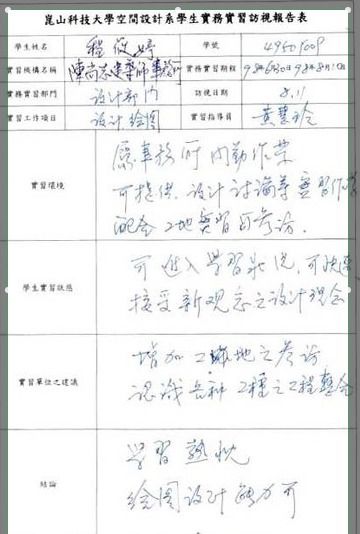 崑山科技大學空間設計系學生實務實習訪視報告表
學生姓名 程筱婷 學號 4950I009
實習機構名稱 陳尚志建築師事務所 實務實習期程
實務實習部門 設計部門 訪視日期 8.11
實習工作項目 設計繪圖 實習指導員 黃慧玲
實習環境
屬事務所內勤作業
可提供設計討論等實習作業
配合工地實習可參訪.
學生實習狀態
可進入學習狀況,可快速
接受新觀念之設計理念
實習單位之建議
增加工地之參訪
認識各種工種之工程整合
結論
學習熱忱
繪圖設計能力可